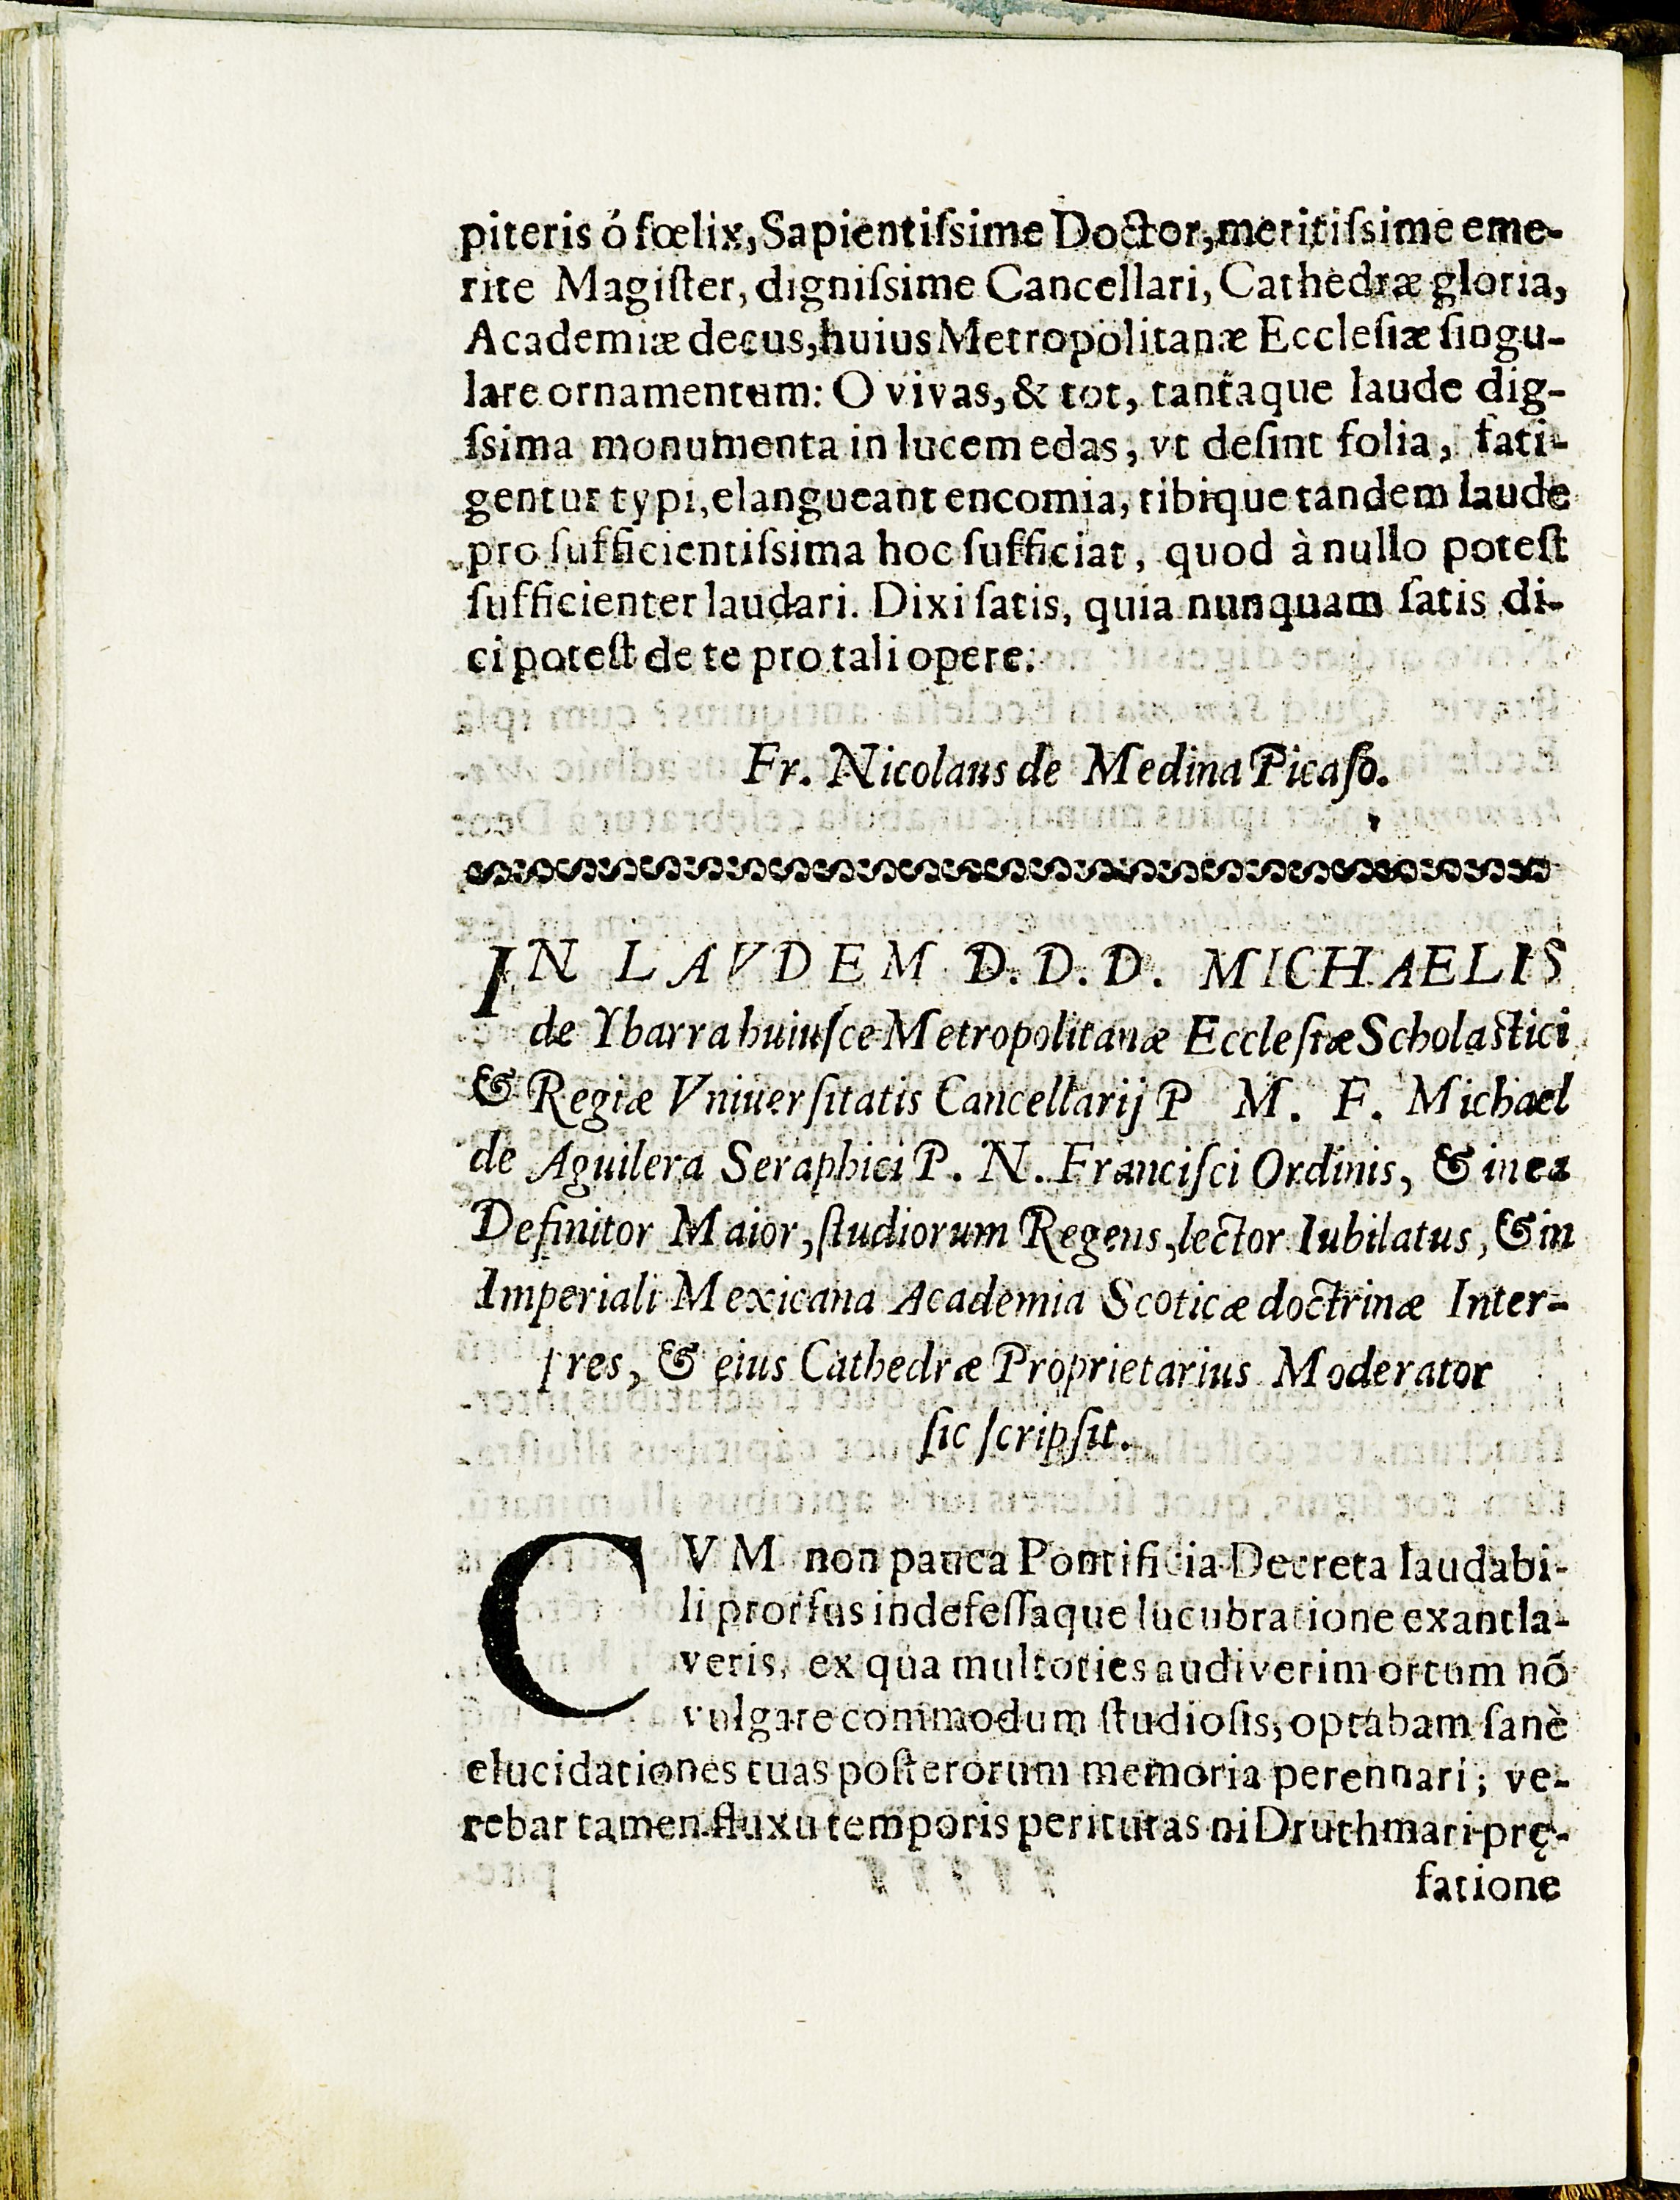 piteris ó fœlix, Sapientiſsime Doctor, meritiſsime eme-
rite Magiſter, digniſsime Cancellari, Cathedræ gloria,
Academiæ decus, huius Metropolitanæ Eccleſiæ ſingu-
lare ornamentum: O vivas, & tot, tantaque laude dig-
ſsima monumenta in lucem edas, vt deſint folia, fati-
gentur typi, elangueant encomia, tibique tandem laude
pro ſufficientiſsima hoc ſufficiat, quod à nullo poteſt
ſufficienter laudari. Dixi ſatis, quia nunquam ſatis di-
ci poteſt de te pro tali opere.
Fr. Nicolaus de Medina Picaſo.
IN LAVDEM D.D.D. MICHAELIS
de Ybarra huiuſce Metropolitanæ Eccleſiæ Scholaſtici
& Regiæ Vniuerſitatis Cancellarij P M. F. Michael
de Aguilera Seraphici P. N. Franciſci Ordinis, & in ea
Definitor Maior, ſtudiorum Regens, lector Iubilatus, & in
Imperiali Mexicana Academia Scoticæ doctrinæ Inter-
pres, & eius Cathedræ Proprietarius Moderator
ſic ſcripſit.
CVM non pauca Pontificia Decreta laudabi-
li prorſus indefeſſaque lucubratione exantla-
veris, ex qua multoties audiverim ortum nõ
vulgare commodum ſtudioſis, optabam ſanè
elucidationes tuas poſterorum memoria perennari; ve-
rebar tamen fluxu temporis perituras ni Druthmari prę-
fatione